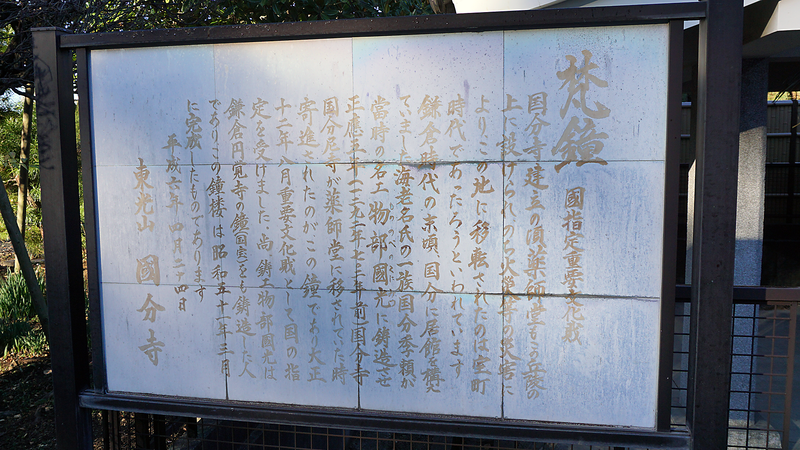 梵鐘 國指定重要文化戝
国分寺建立の頃薬師堂とこの丘陵の
上に設けられのち火災等の災害に
よりこの地に移転されたのは室町
時代であったろうといわれています
鎌倉時代の末頃、国分に居館を構え
ていました海老名氏の一族国分季頼が
当時の名工物部國光に鋳造させ
もののべのくにみつ
正應五年(一二九二年七〇二年前)国分寺
国分尼寺が薬師堂に移されていた時
寄進されたのがこの鐘であり大正
十二年八月重要文化戝として国の指
定を受けました.尚.鋳工物部國光は
鎌倉円覚寺の鐘(国宝)をも鋳造した人
でありこの鐘楼は昭和五十一年三月
に完成したものであります
平成六年 四月二十四日
東光山 國分寺